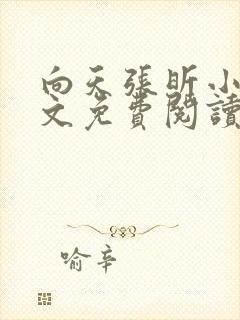 向天張昕小
文免費閱讀
喻辛